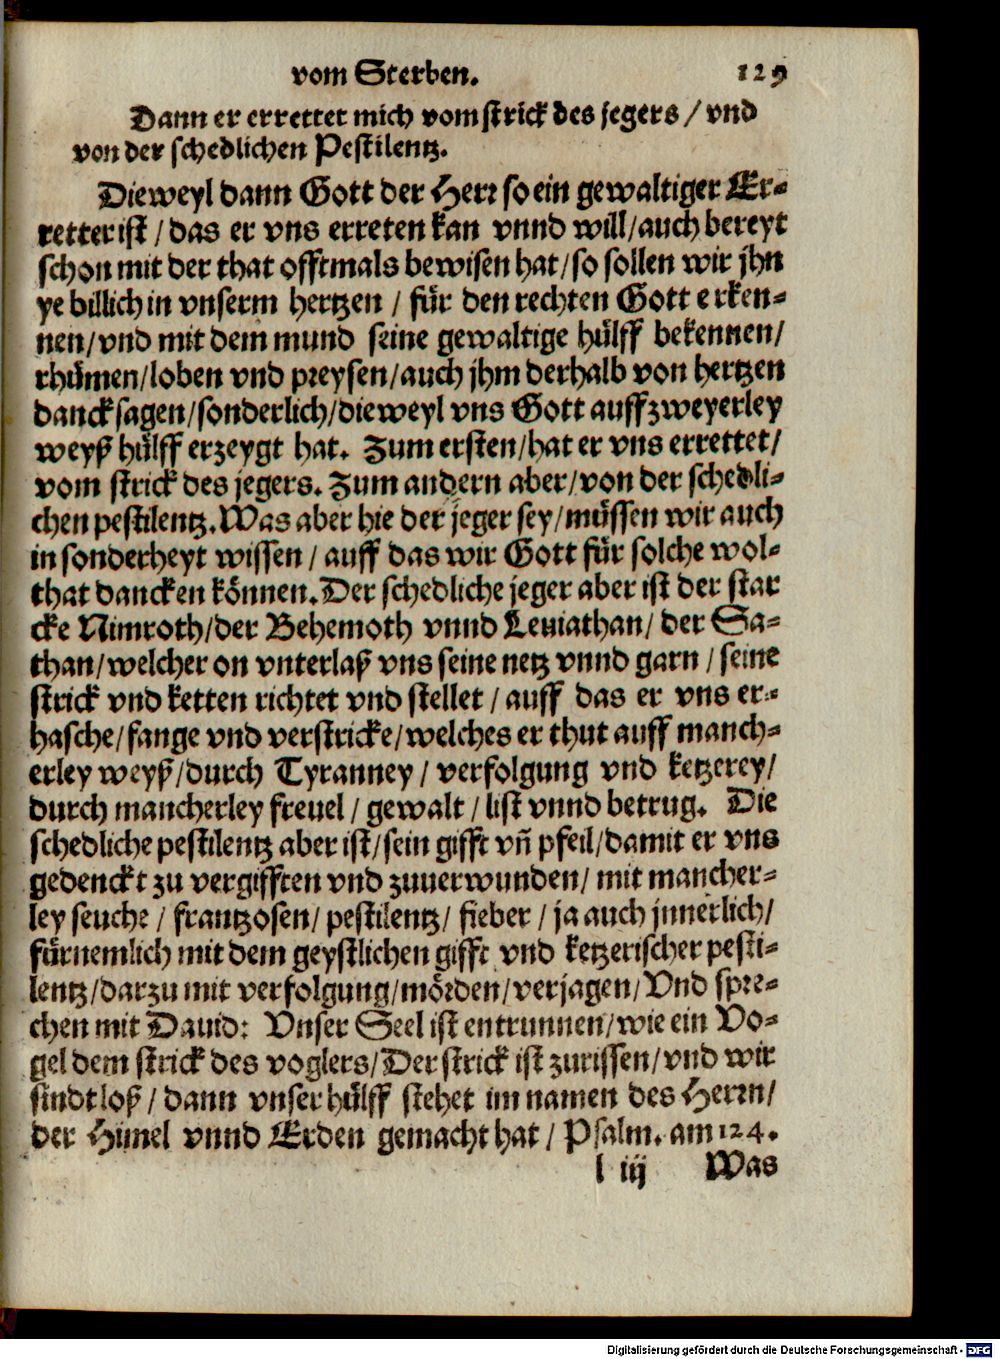 vom Sterben. 129
Dann er errettet mich vom strick des jegers / vnd
von der schedlichen Pestilentz.
Dieweyl dann Gott der Herr so ein gewaltiger Er-
retter ist / das er vns erreten kan vnnd will / auch bereyt
schon mit der that offtmals bewisen hat / so sollen wir jhn
ye billich in vnserm hertzen / für den rechten Gott erken-
nen / vnd mit dem mund seine gewaltige hülff bekennen /
rhümen / loben vnd preysen / auch jhm derhalb von hertzen
dancksagen / sonderlich / dieweyl vns Gott auff zweyerley
weyß hülff erzeygt hat. Zum ersten / hat er vns errettet /
vom strick des jegers. Zum andern aber / von der schedli-
chen pestilentz. Was aber hie der jeger sey / müssen wir auch
in sonderheyt wissen / auff das wir Gott für solche wol-
that dancken können. Der schedliche jeger aber ist der star
cke Nimroth / der Behemoth vnnd Leuiathan / der Sa-
than / welcher on vnterlaß vns seine netz vnnd garn / seine
strick vnd ketten richtet vnd stellet / auff das er vns er-
hasche / fange vnd verstricke / welches er thut auff manch-
erley weyß / durch Tyranney / verfolgung vnd ketzerey /
durch mancherley freuel / gewalt / list vnnd betrug. Die
schedliche pestilentz aber ist / sein gifft vñ pfeil / damit er vns
gedenckt zu vergifften vnd zuuerwunden / mit mancher-
ley seuche / frantzosen / pestilentz / fieber / ja auch jnnerlich /
fürnemlich mit dem geystlichen gifft vnd ketzerischer pesti-
lentz / darzu mit verfolgung / mörden / verjagen / Vnd spre-
chen mit Dauid: Vnser Seel ist entrunnen / wie ein Vo-
gel dem strick des voglers / Der strick ist zurissen / vnd wir
sindt loß / dann vnser hülff stehet im namen des Herrn /
der Himel vnnd Erden gemacht hat / Psalm. am 124.
l iij Was
Digitalisierung gefördert durch die Deutsche Forschungsgemeinschaft - DFG